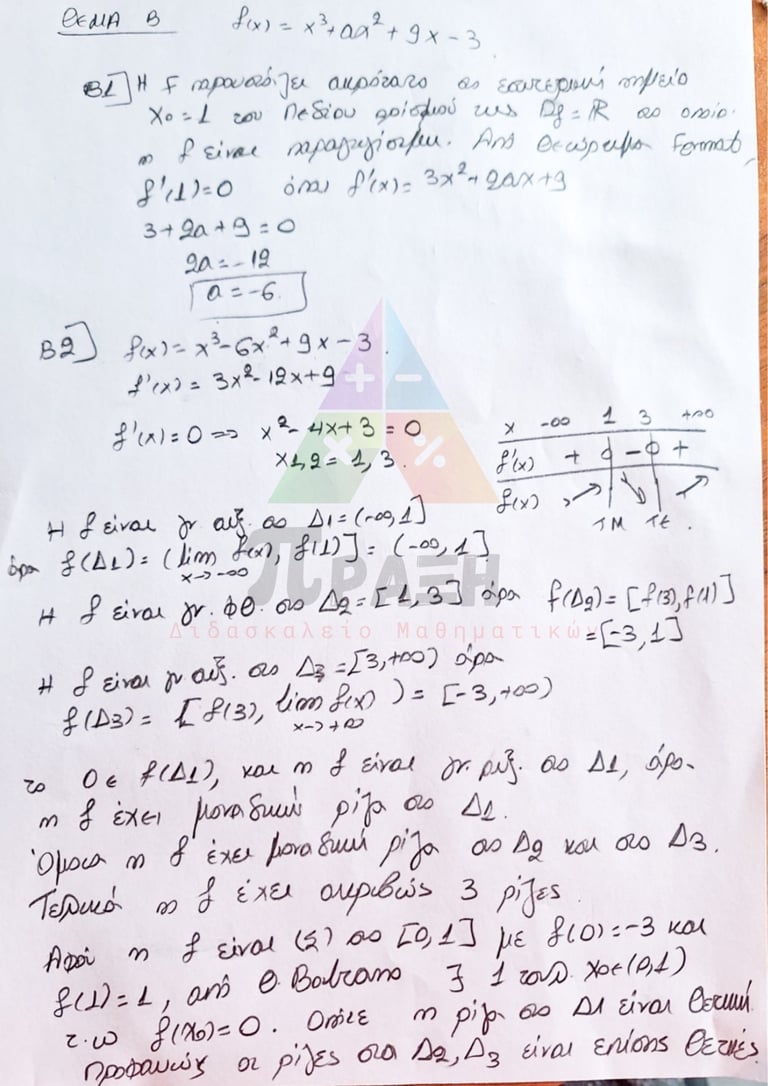 ΘΕΜΑ Β f(x) = x³+αx²+9x-3
Β1] Η f παρουσιάζει ακρότατο σε εσωτερικό σημείο
x₀=1 του πεδίου ορισμού της Df=ℝ στο οποίο
η f είναι παραγωγίσιμη. Από Θεώρημα Fermat,
f'(1)=0 όπου f'(x)=3x²+2αx+9
3+2α+9=0
2α=-12
α=-6.
Β2] f(x)=x³-6x²+9x-3.
f'(x)=3x²-12x+9
f'(x)=0 => x²-4x+3=0
x1,2=1,3.
x -∞ 1 3 +∞
f'(x) + 0 - 0 +
f(x) ↗ ↘ ↗
ΤΜ ΤΕ.
Η f είναι γν. αυξ. στο Δ1=(-∞,1]
άρα f(Δ1)=(lim f(x), f(1)]=(-∞,1]
x→-∞
ΠΡΑΞΗ
Η f είναι γν. φθ. στο Δ2=[1,3] άρα f(Δ2)=[f(3),f(1)]
Διδασκαλείο Μαθηματικών
=[-3,1]
Η f είναι γν αυξ. στο Δ3=[3,+∞) άρα
f(Δ3)=[f(3), lim f(x))=[-3,+∞)
x→+∞
το 0∈f(Δ1), και η f είναι γν. αυξ. στο Δ1, άρα
η f έχει μοναδική ρίζα στο Δ1.
Όμοια η f έχει μοναδική ρίζα στο Δ2 και στο Δ3.
Τελικά η f έχει ακριβώς 3 ρίζες
Αφού η f είναι (Σ) στο [0,1] με f(0)=-3 και
f(1)=1, από Θ. Bolzano ∃ 1 τουλ. x₀∈(0,1)
τ.ω f(x₀)=0. Οπότε η ρίζα στο Δ1 είναι θετική
Προφανώς οι ρίζες στα Δ2,Δ3 είναι επίσης θετικές.